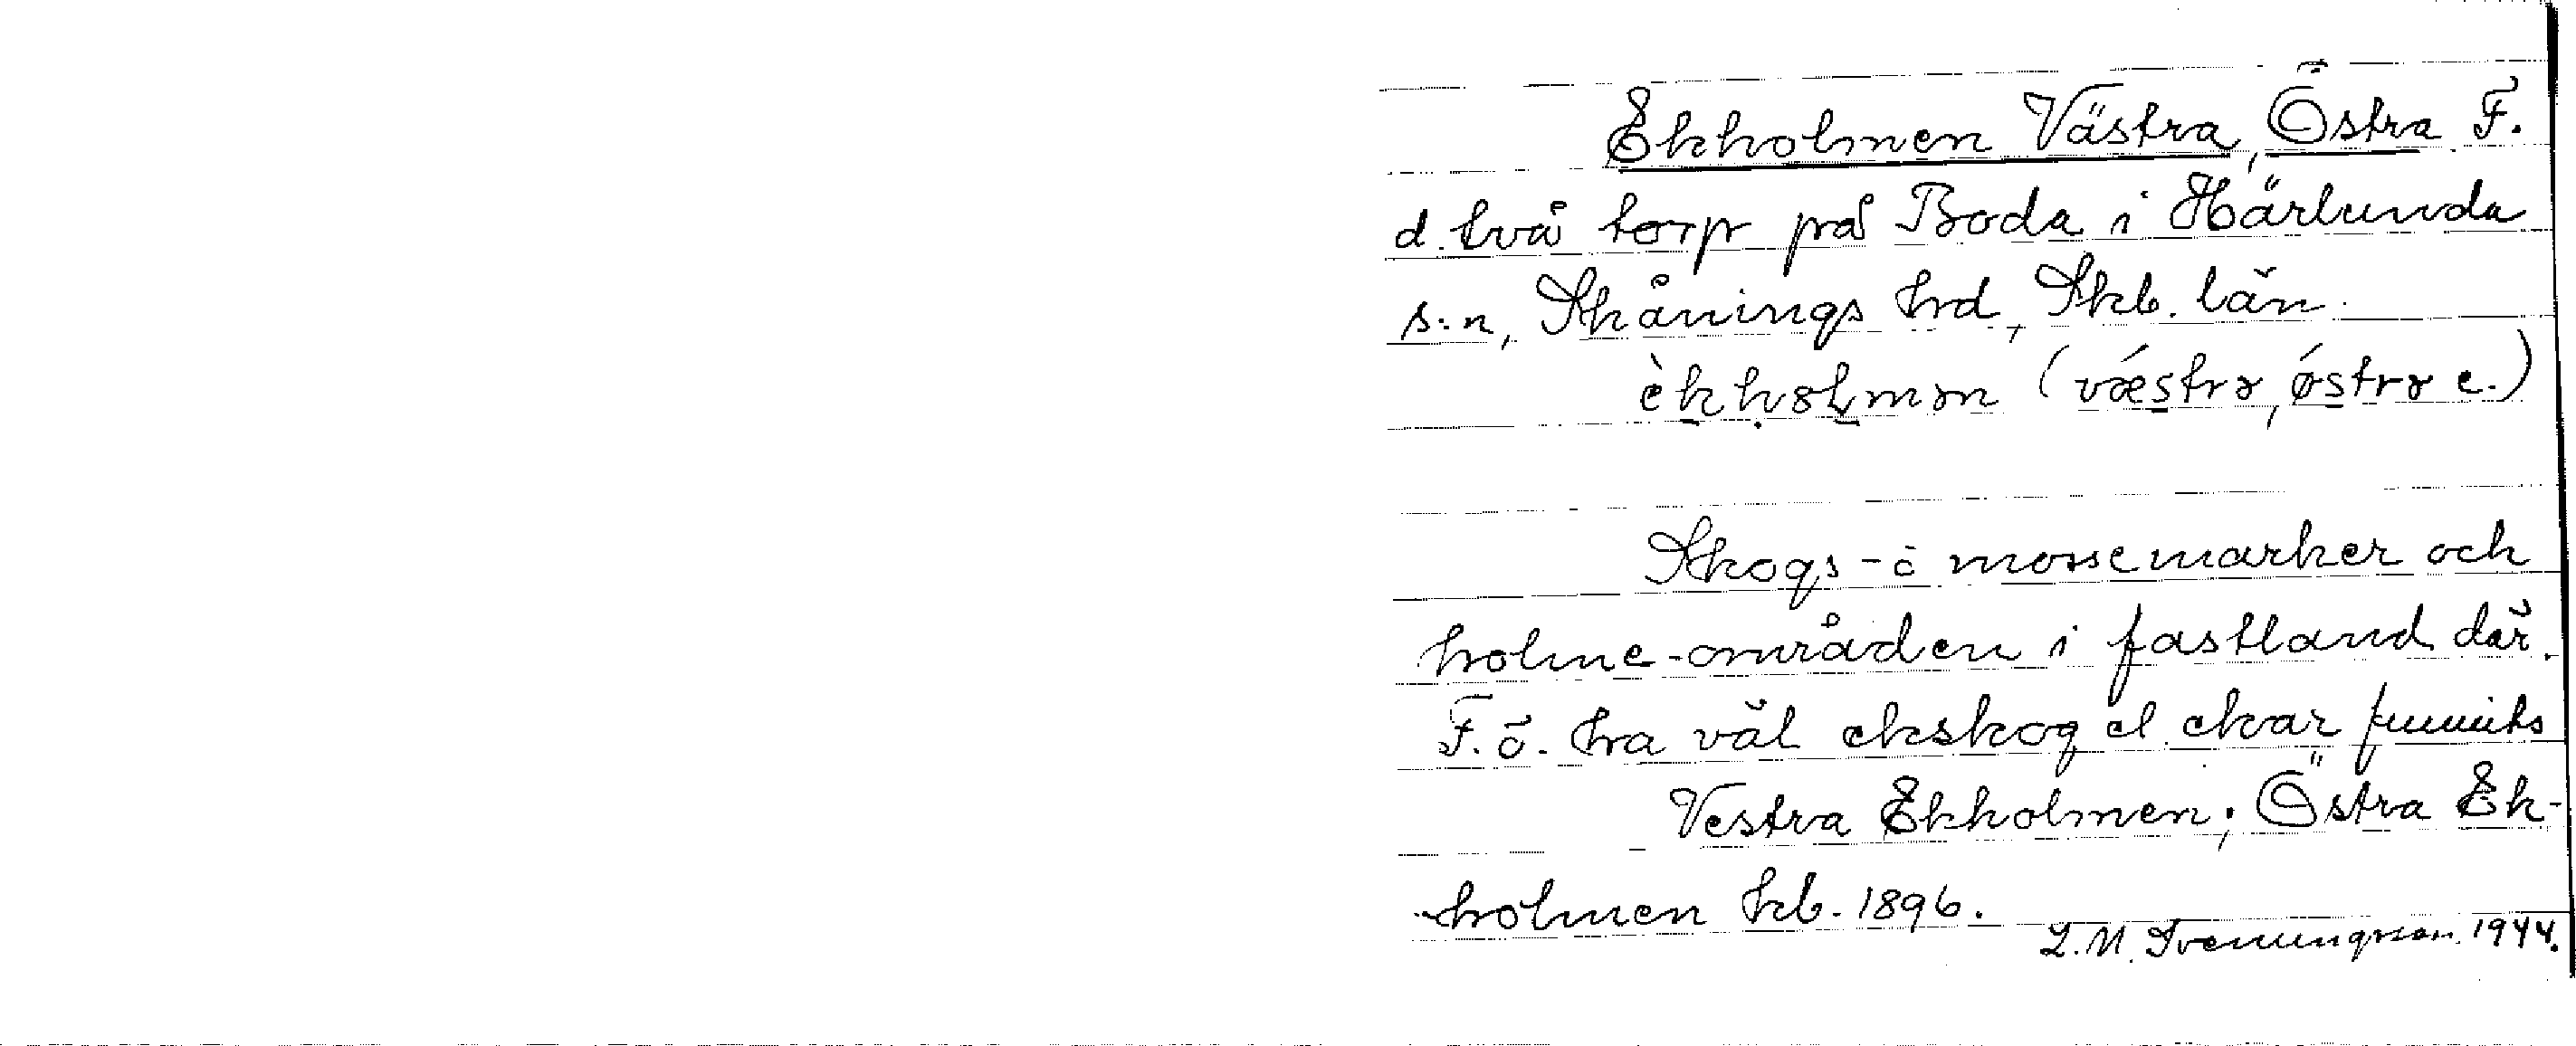 Ekholmen Västra, Östra F.
d. två torp på Boda i Härlunda
s:n, Skånings hrd, Skb. län.
èkhɷlmən (vǽstrɤ, ǿstrɤ e.)
Skogs- ö mossemarker och
holme-områden i fastland där.
F. ö. ha väl ekskog el. ekar funnits
Vestra Ekholmen; Östra Ek-
holmen kb. 1896.
L. M. Svenungsson 1944.